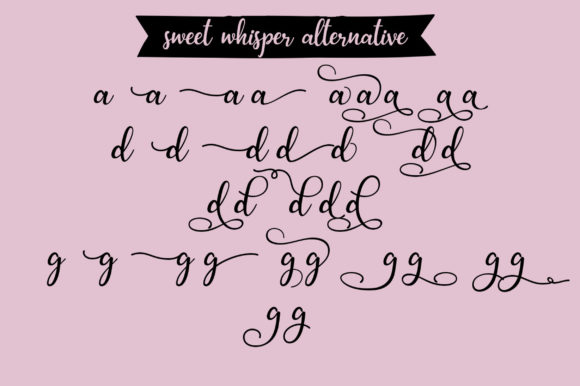 sweet whisper alternative
a a a a a a a a a
d d d d d d d
d d d d d
g g g g g g g g g g
g g